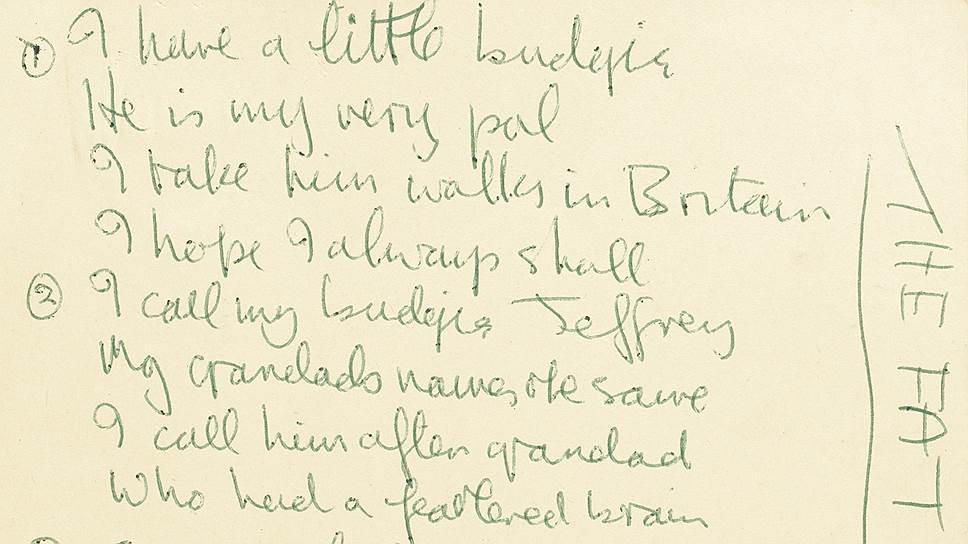 ① I have a little budgie
He is my very pal
I take him walks in Britain
I hope I always shall
② I call my budgie Jeffrey
My grandads names the same
I call him after grandad
Who had a feathered brain
THE FAT